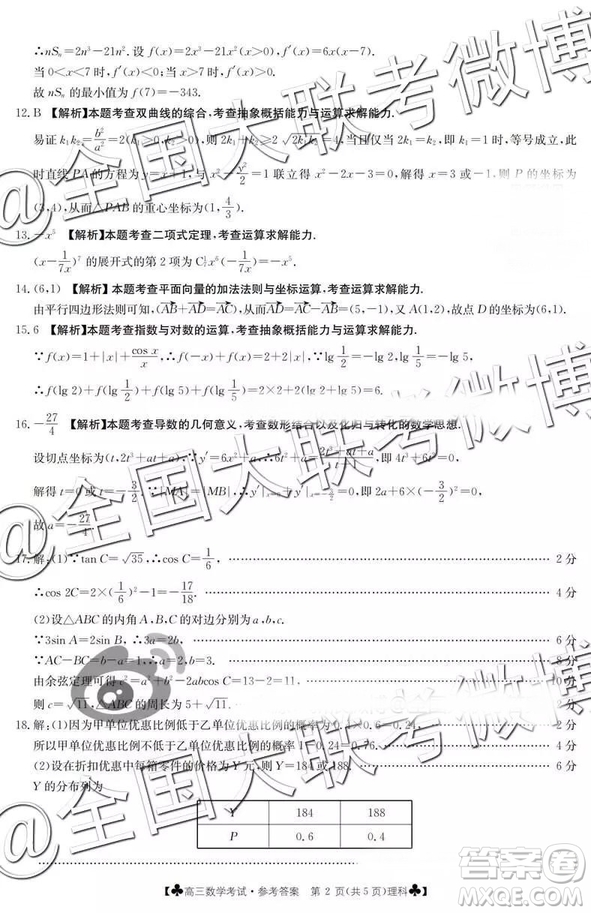 ∴nSₙ=2n³-21n². 设 f(x)=2x³-21x²(x>0), f′(x)=6x(x-7).
当 0<x<7 时, f′(x)<0; 当 x>7 时, f′(x)>0.
故 nSₙ 的最小值为 f(7)=-343.
12. B 【解析】本题考查双曲线的综合, 考查抽象概括能力与运算求解能力.
易证 k₁k₂=b²/a²
当且仅当 2k₁=k₂, 即 k₁=1 时, 等号成立, 此
时直线 PA 的方程为 y=x+1, 与 联立得 x²-2x-3=0, 解得 x=3 则 P 的坐标为
(3,4), 从而△PAB 的重心坐标为(1, 4/3).
13. -x⁵ 【解析】本题考查二项式定理, 考查运算求解能力.
(x-1/(7x))⁷ 的展开式的第 2 项为 C₇¹x⁶(-1/(7x))=-x⁵.
14. (6,1) 【解析】本题考查平面向量的加法法则与坐标运算, 考查运算求解能力.
由平行四边形法则可知, AB+AD=AC, 从而AD=AC-AB=(5,-1), 又 A(1,2), 故点 D 的坐标为(6,1).
15. 6 【解析】本题考查指数与对数的运算, 考查抽象概括能力与运算求解能力.
∵f(x)=1+|x|+cos x/x, ∴f(-x)+f(x)=2+2|x|, ∵lg 1/2=-lg 2, lg 1/5=-lg 5,
∴f(lg 2)+f(lg 1/2)+f(lg 5)+f(lg 1/5)=2×2+2(lg 2+lg 5)=6.
16. -27/4 【解析】本题考查导数的几何意义, 考查数形结合以及化归与转化的数学思想.
设切点坐标为(t,2t³+at+a), ∵y′=6x²+a, 即 4t³+6t²=0,
解得 t=0 或 t=-3/2. ∵|MA|=|MB| 即 2a+6×(-3/2)²=0,
故 a=-27/4.
17. 解:(1)∵tan C=√35, ∴cos C=1/6, 2 分
∴cos 2C=2×(1/6)²-1=-17/18. 4 分
(2)设△ABC 的内角 A,B,C 的对边分别为 a,b,c.
∵3sin A=2sin B, ∴3a=2b, 6 分
∵AC-BC=b-a=1, ∴a=2,b=3. 8 分
由余弦定理可得 c²=a²+b²-2abcos C=13-2=11, 10 分
则 c=√11, △ABC 的周长为 5+√11. 12 分
18. 解:(1)因为甲单位优惠比例低于乙单位优惠比例的概率为 0.4×0.6=0.24,
所以甲单位优惠比例不低于乙单位优惠比例的概率 1-0.24=0.76. 4 分
(2)设在折扣优惠中每箱零件的价格为 Y 元, 则 Y=184 或 188. 6 分
Y 的分布列为
Y 184 188
P 0.6 0.4
♣高三数学考试·参考答案 第 2 页(共 5 页)理科♣
@全国大联考微博
@全国大联考微博
@全国大联考微博
答案圈